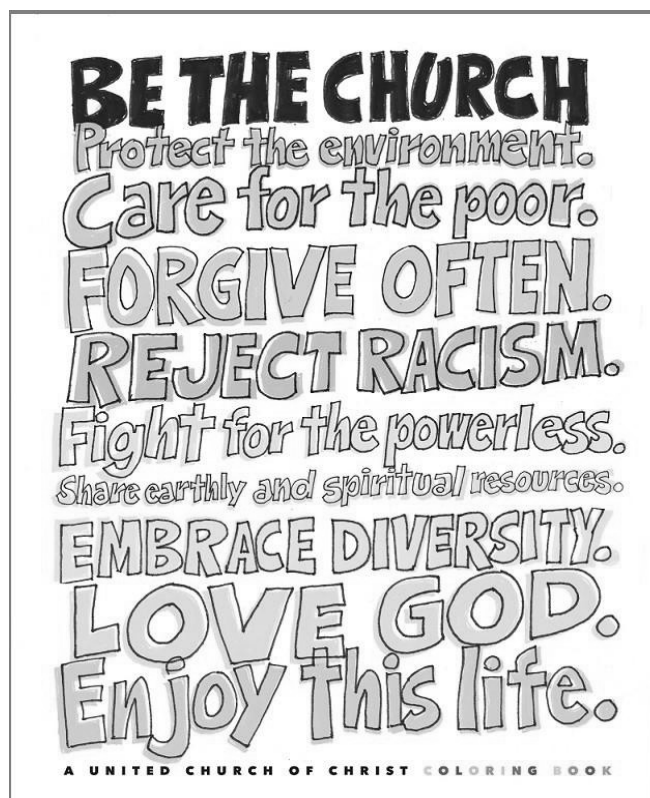 BE THE CHURCH
Protect the environment.
Care for the poor.
FORGIVE OFTEN.
REJECT RACISM.
Fight for the powerless.
Share earthly and spiritual resources.
EMBRACE DIVERSITY.
LOVE GOD.
Enjoy this life.
A UNITED CHURCH OF CHRIST COLORING BOOK